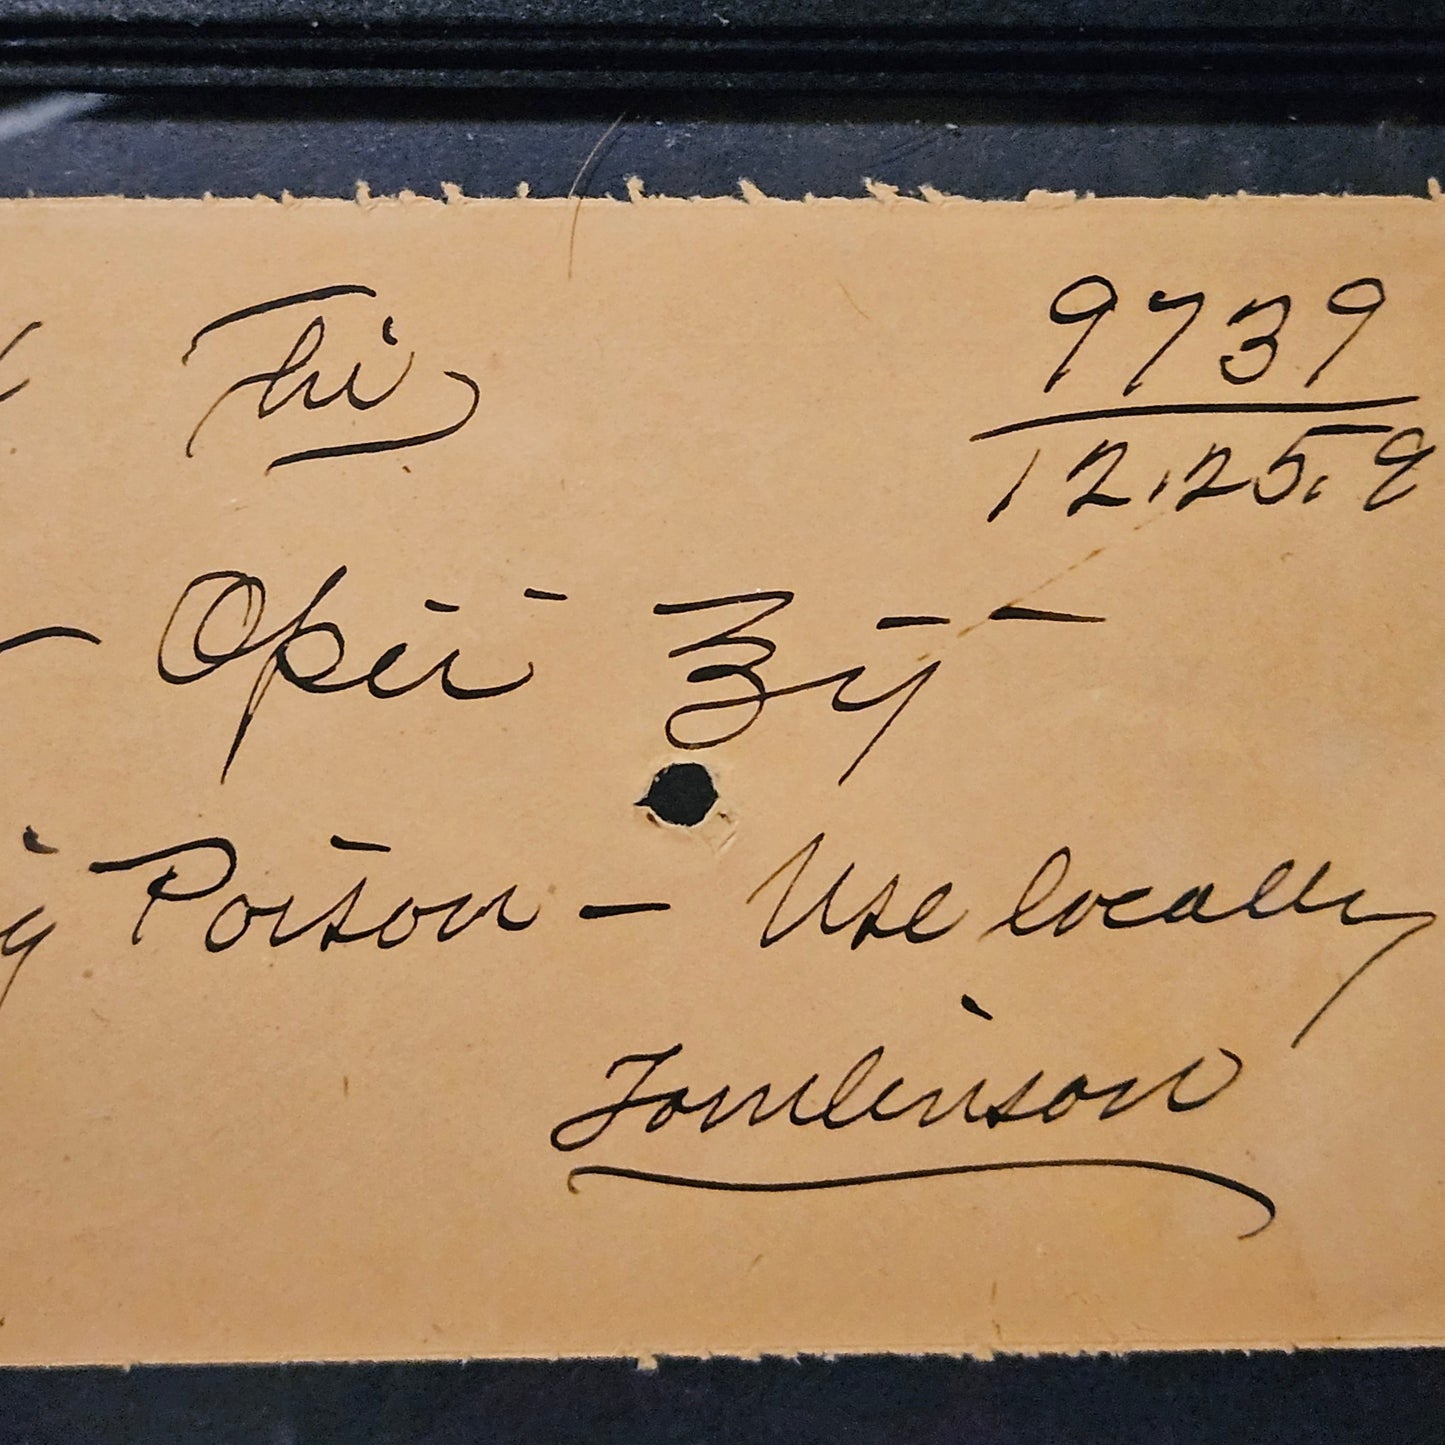 9739
12.25.9
Opii ʒij
Poison – Use locally
Tomlinson